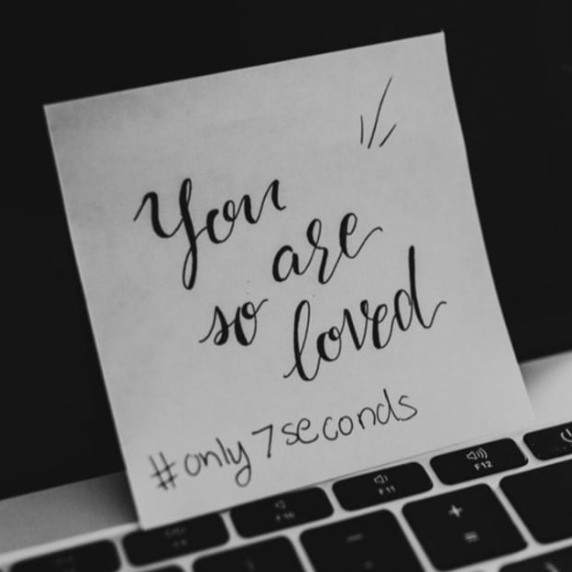 You
are
so loved
#only7seconds
F10
F11
F12
+
=